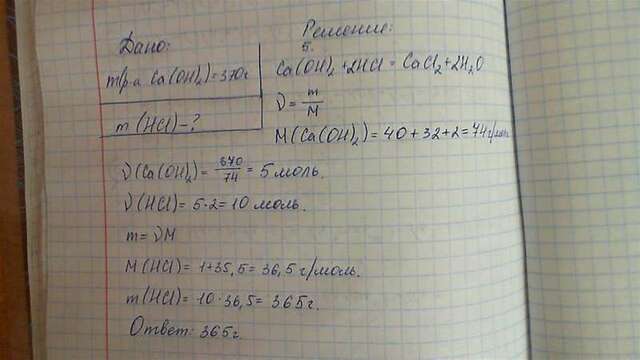 Дано:
m(р-а Ca(OH)₂)=370г
m(HCl)-?
Решение:
5.
Ca(OH)₂+2HCl=CaCl₂+2H₂O
ν=m/M
M(Ca(OH)₂)=40+32+2=74г/моль
ν(Ca(OH)₂)=670/74=5моль.
ν(HCl)=5·2=10 моль.
m=νM
M(HCl)=1+35,5=36,5 г/моль.
m(HCl)=10·36,5=365г.
Ответ: 365г.